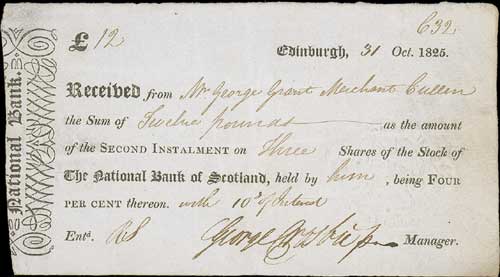 C32
£ 12
Edinburgh, 31 Oct. 1825.
Received from Mr George Grant Merchant Cullen
the Sum of Twelve pounds as the amount
of the SECOND INSTALMENT on Three Shares of the Stock of
The National Bank of Scotland, held by him, being FOUR
PER CENT thereon. with 10d of Interest
Entd. RS George Manager.
National Bank.